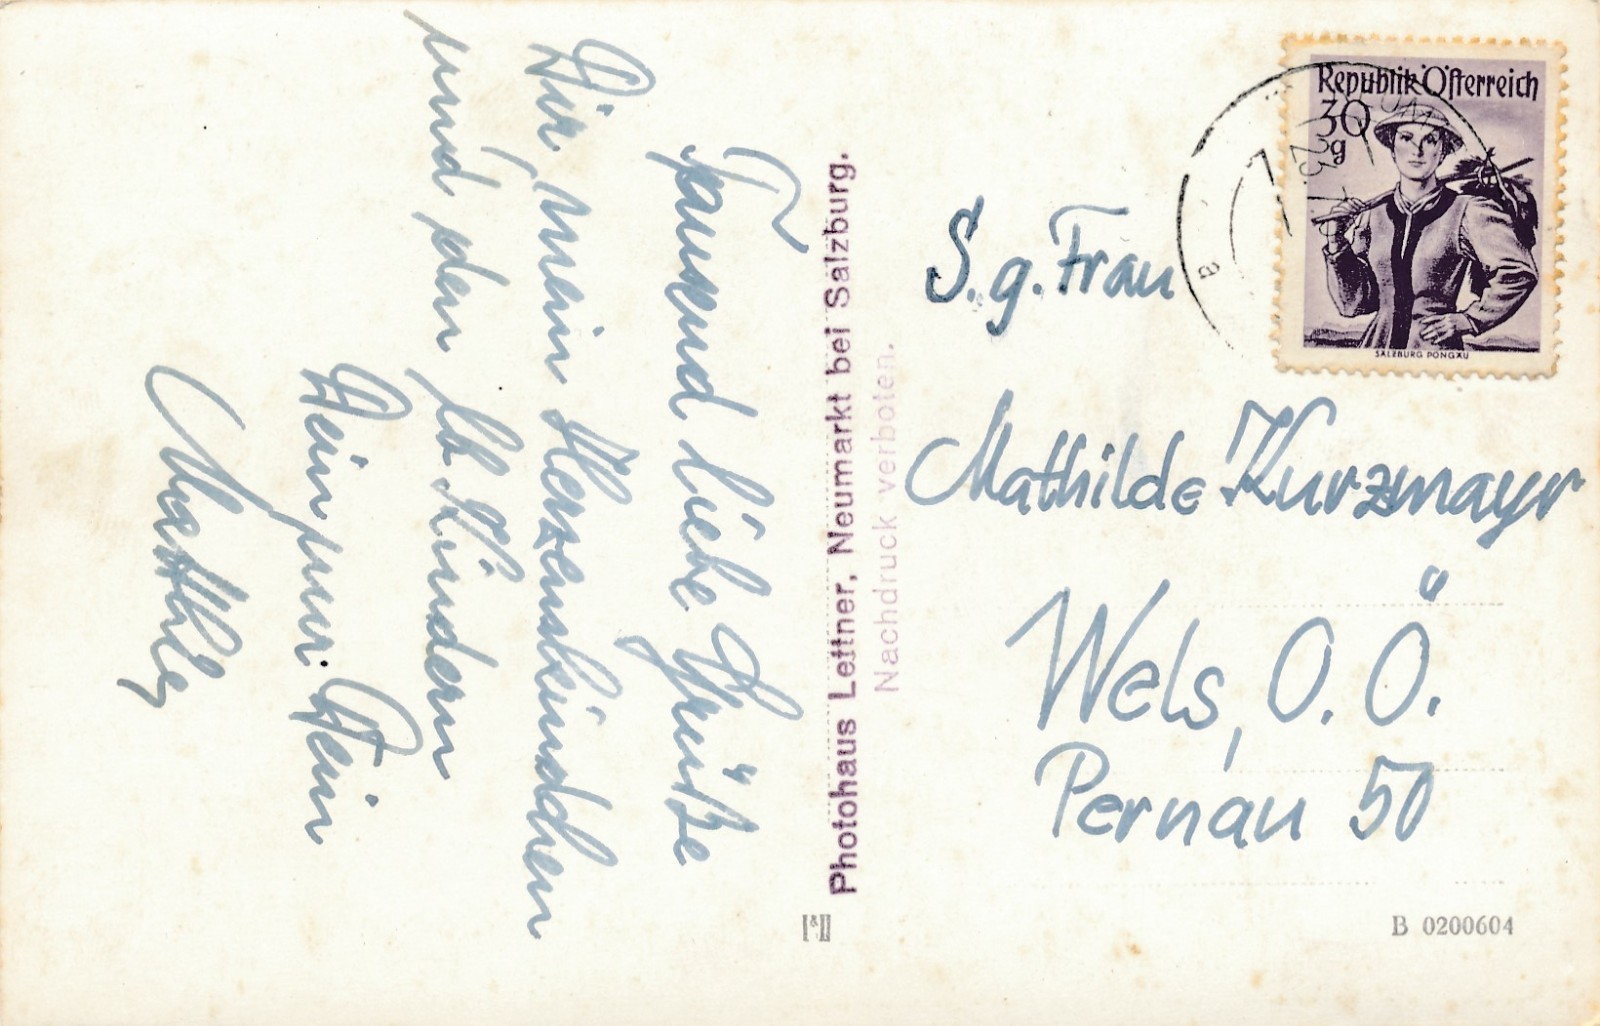 Tausend liebe Grüße
Dir, mein Herzenskindchen
und den lb. Kindern
Dein nur Dein
Photohaus Lettner, Neumarkt bei Salzburg.
Nachdruck verboten.
Republik Österreich
30
g
SALZBURG PONGAU
23.
S. g. Frau
Mathilde Kurzmayr
Wels, O. Ö.
Pernau 50
B 0200604